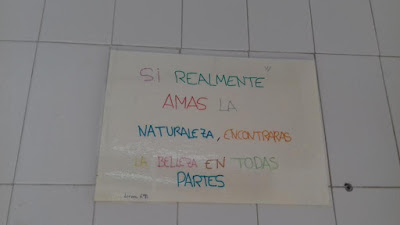 SI REALMENTE
AMAS LA
NATURALEZA, ENCONTRARAS
LA BELLEZA EN TODAS
PARTES